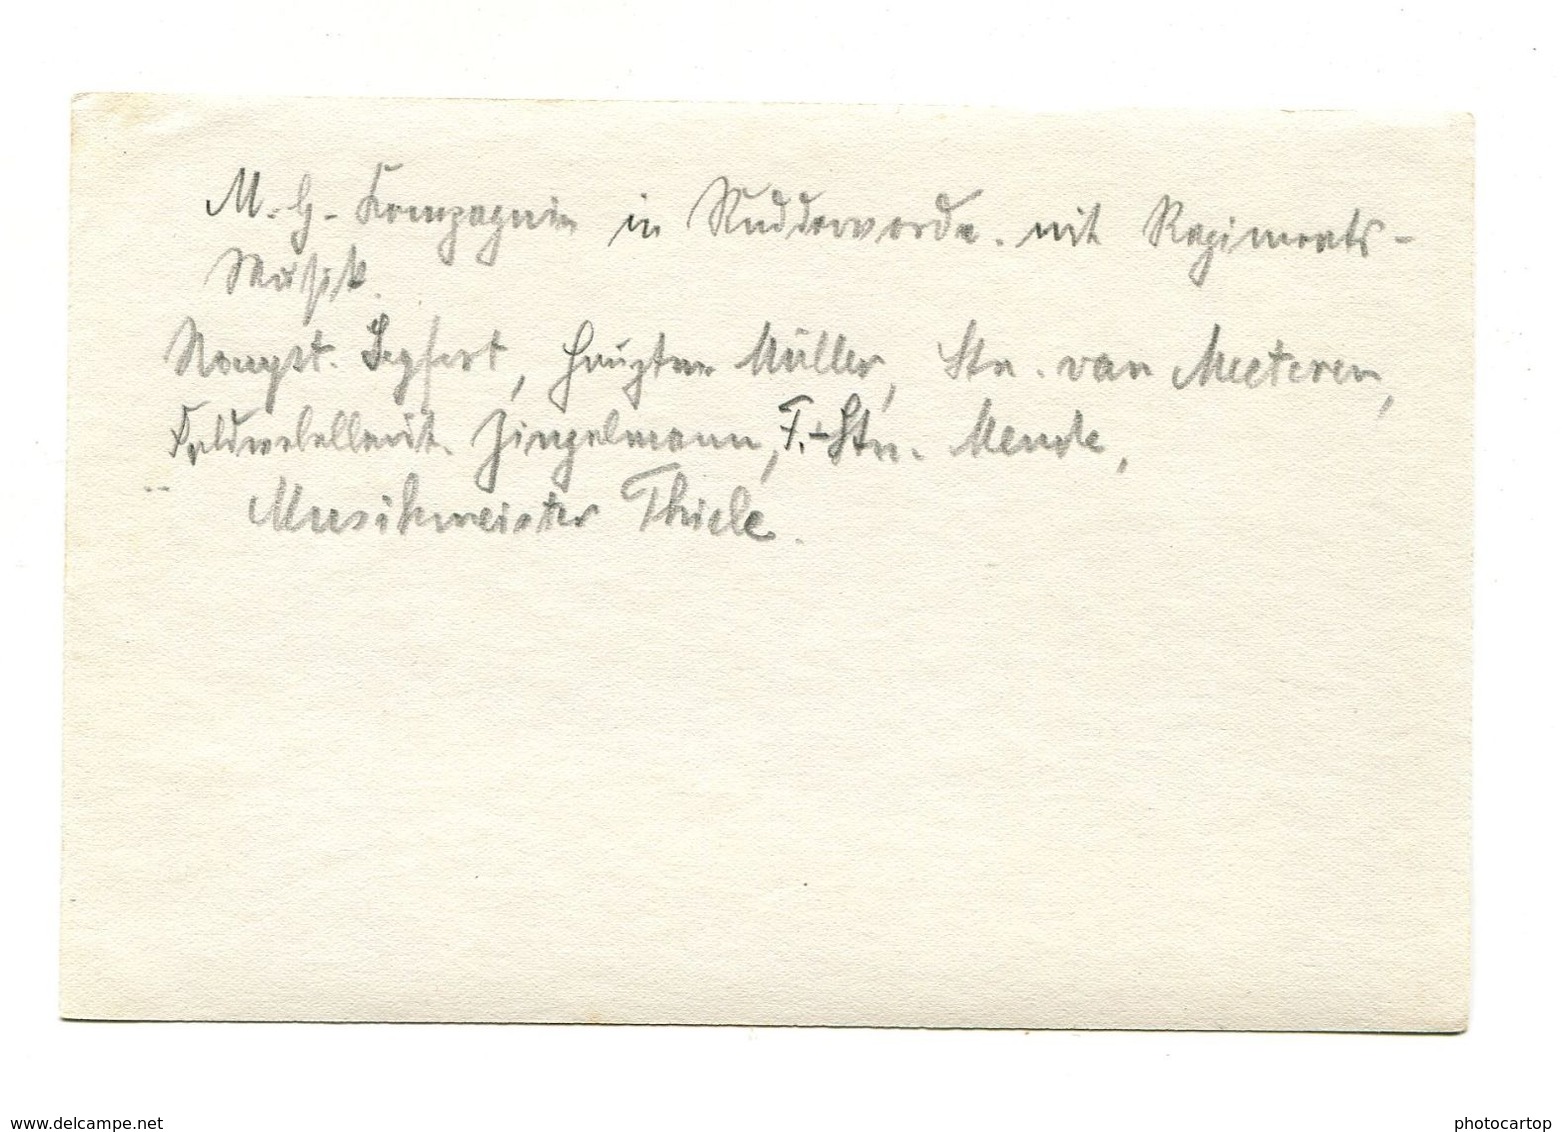 M.-G.-Kompagnie in Ruddervorde. mit Regiments-
Musik.
Seyfert, Hauptm Müller, Ltn. van Meeteren,
Feldwebelleut. Zingelmann, F.-Ltn. Mende,
Musikmeister Thiele.
www.delcampe.net
photocartop